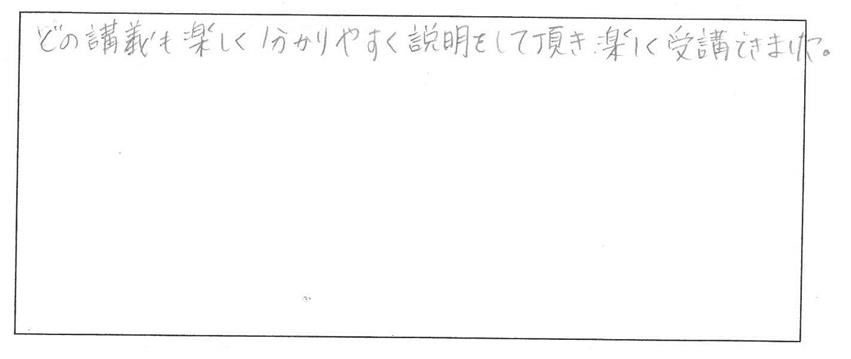 どの講義も楽しく分かりやすく説明をして頂き楽しく受講できました。